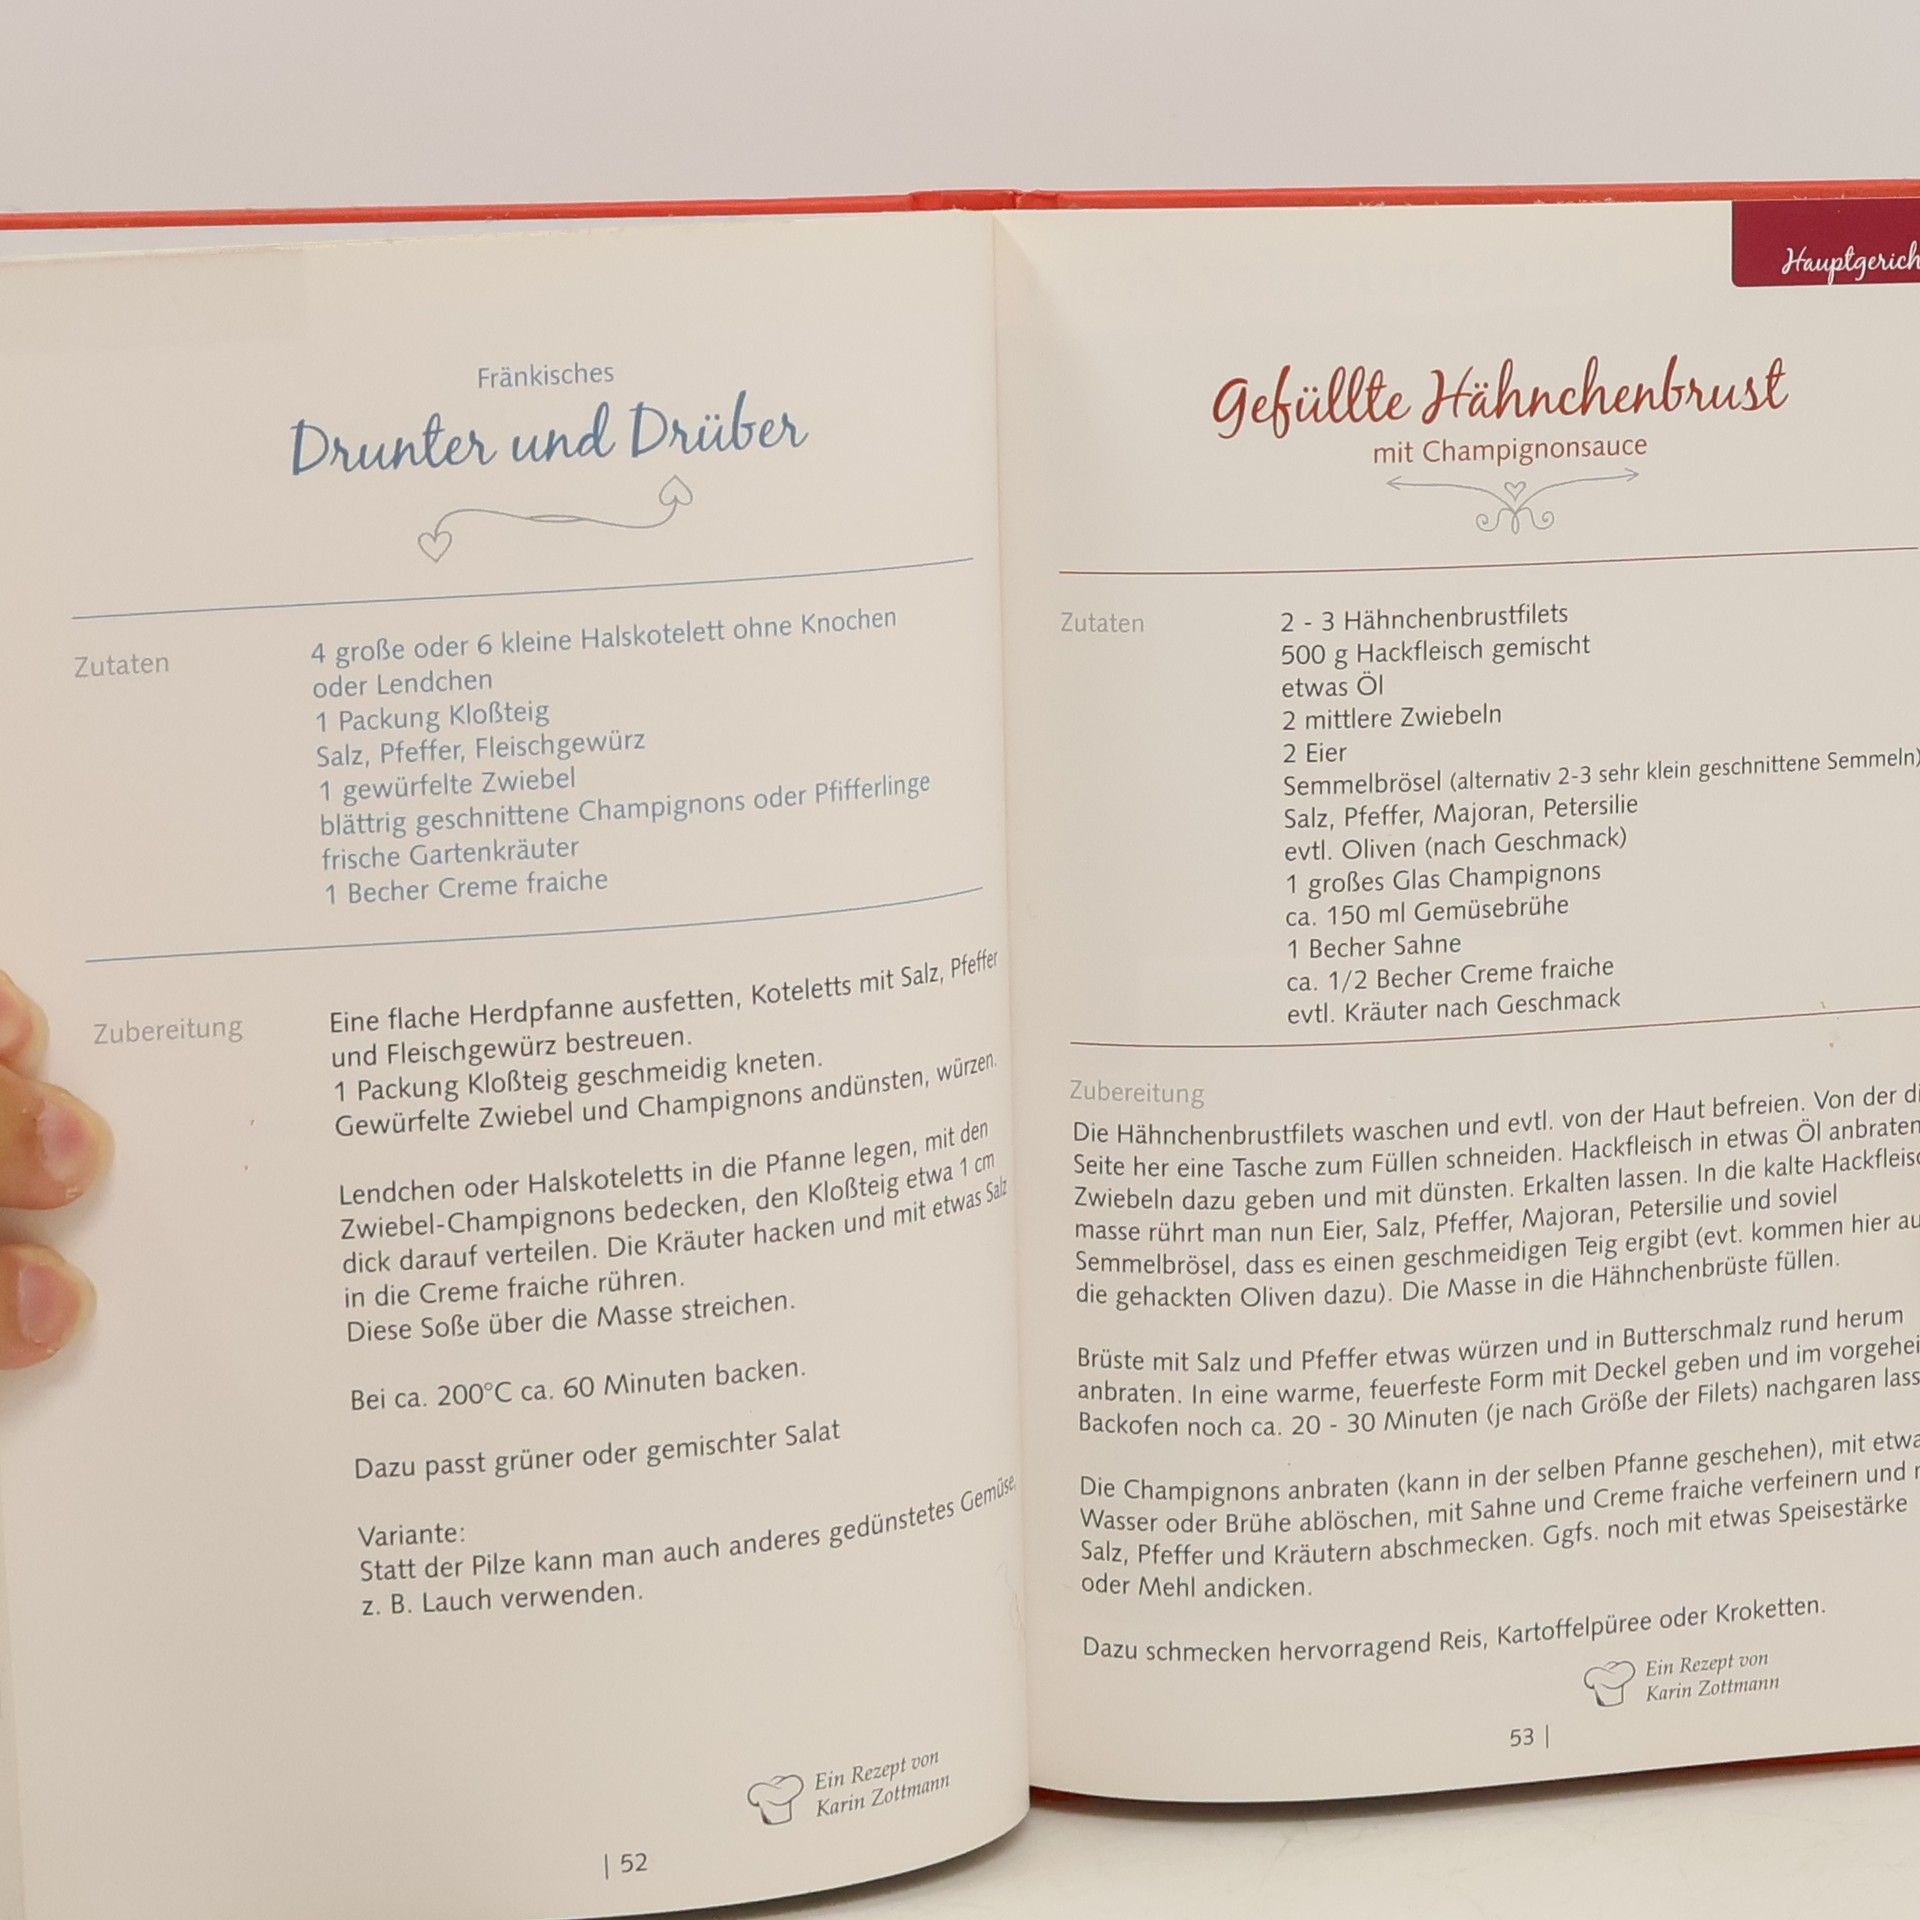 Fränkisches
Drunter und Drüber
Zutaten
4 große oder 6 kleine Halskotelett ohne Knochen
oder Lendchen
1 Packung Kloßteig
Salz, Pfeffer, Fleischgewürz
1 gewürfelte Zwiebel
blättrig geschnittene Champignons oder Pfifferlinge
frische Gartenkräuter
1 Becher Creme fraiche
Zubereitung
Eine flache Herdpfanne ausfetten, Koteletts mit Salz, Pfeffer
und Fleischgewürz bestreuen.
1 Packung Kloßteig geschmeidig kneten.
Gewürfelte Zwiebel und Champignons andünsten, würzen.
Lendchen oder Halskoteletts in die Pfanne legen, mit den
Zwiebel-Champignons bedecken, den Kloßteig etwa 1 cm
dick darauf verteilen. Die Kräuter hacken und mit etwas Salz
in die Creme fraiche rühren.
Diese Soße über die Masse streichen.
Bei ca. 200°C ca. 60 Minuten backen.
Dazu passt grüner oder gemischter Salat
Variante:
Statt der Pilze kann man auch anderes gedünstetes Gemüse,
z. B. Lauch verwenden.
Ein Rezept von
Karin Zottmann
| 52
Hauptgerich
Gefüllte Hähnchenbrust
mit Champignonsauce
Zutaten
2 - 3 Hähnchenbrustfilets
500 g Hackfleisch gemischt
etwas Öl
2 mittlere Zwiebeln
2 Eier
Semmelbrösel (alternativ 2-3 sehr klein geschnittene Semmeln)
Salz, Pfeffer, Majoran, Petersilie
evtl. Oliven (nach Geschmack)
1 großes Glas Champignons
ca. 150 ml Gemüsebrühe
1 Becher Sahne
ca. 1/2 Becher Creme fraiche
evtl. Kräuter nach Geschmack
Zubereitung
Die Hähnchenbrustfilets waschen und evtl. von der Haut befreien. Von der di
Seite her eine Tasche zum Füllen schneiden. Hackfleisch in etwas Öl anbraten
Zwiebeln dazu geben und mit dünsten. Erkalten lassen. In die kalte Hackfleisc
masse rührt man nun Eier, Salz, Pfeffer, Majoran, Petersilie und soviel
Semmelbrösel, dass es einen geschmeidigen Teig ergibt (evt. kommen hier au
die gehackten Oliven dazu). Die Masse in die Hähnchenbrüste füllen.
Brüste mit Salz und Pfeffer etwas würzen und in Butterschmalz rund herum
anbraten. In eine warme, feuerfeste Form mit Deckel geben und im vorgehei
Backofen noch ca. 20 - 30 Minuten (je nach Größe der Filets) nachgaren lass
Die Champignons anbraten (kann in der selben Pfanne geschehen), mit etwa
Wasser oder Brühe ablöschen, mit Sahne und Creme fraiche verfeinern und
Salz, Pfeffer und Kräutern abschmecken. Ggfs. noch mit etwas Speisestärke
oder Mehl andicken.
Dazu schmecken hervorragend Reis, Kartoffelpüree oder Kroketten.
Ein Rezept von
Karin Zottmann
53 |